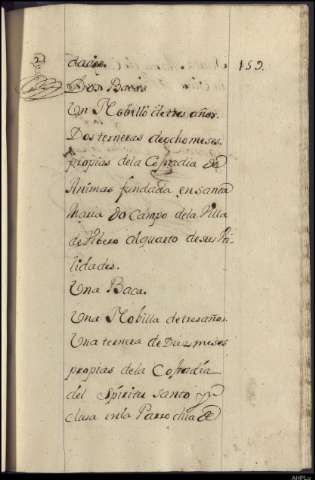 159.
Dos Bacas
Un Nobillo de tres años.
Dos terneras de ocho meses,
propias de la Cofradia de
Animas fundada en santa
Maria do Campo de la Villa
de Vibero al quarto de sus Vti-
lidades.
Una Baca.
Una Nobilla de tres años.
Una ternera de Diez meses
propias de la Cofradia
del Spiritu Santo yn-
clusa en la Parrochia de
AHPL